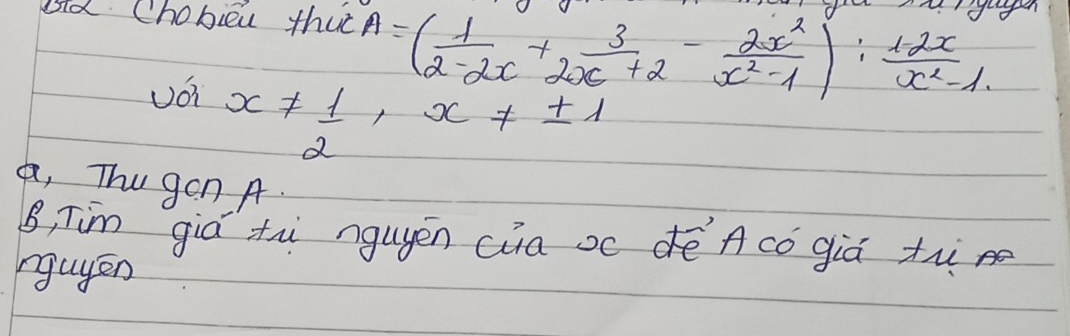 Bt2 Cho biểu thức A = (1/(2-2x) + 3/(2x+2) - 2x²/(x²-1)) : (1-2x)/(x²-1).
với x ≠ 1/2, x ≠ ±1
a, Thu gọn A.
B, Tìm giá trị nguyên của x để A có giá trị
nguyên